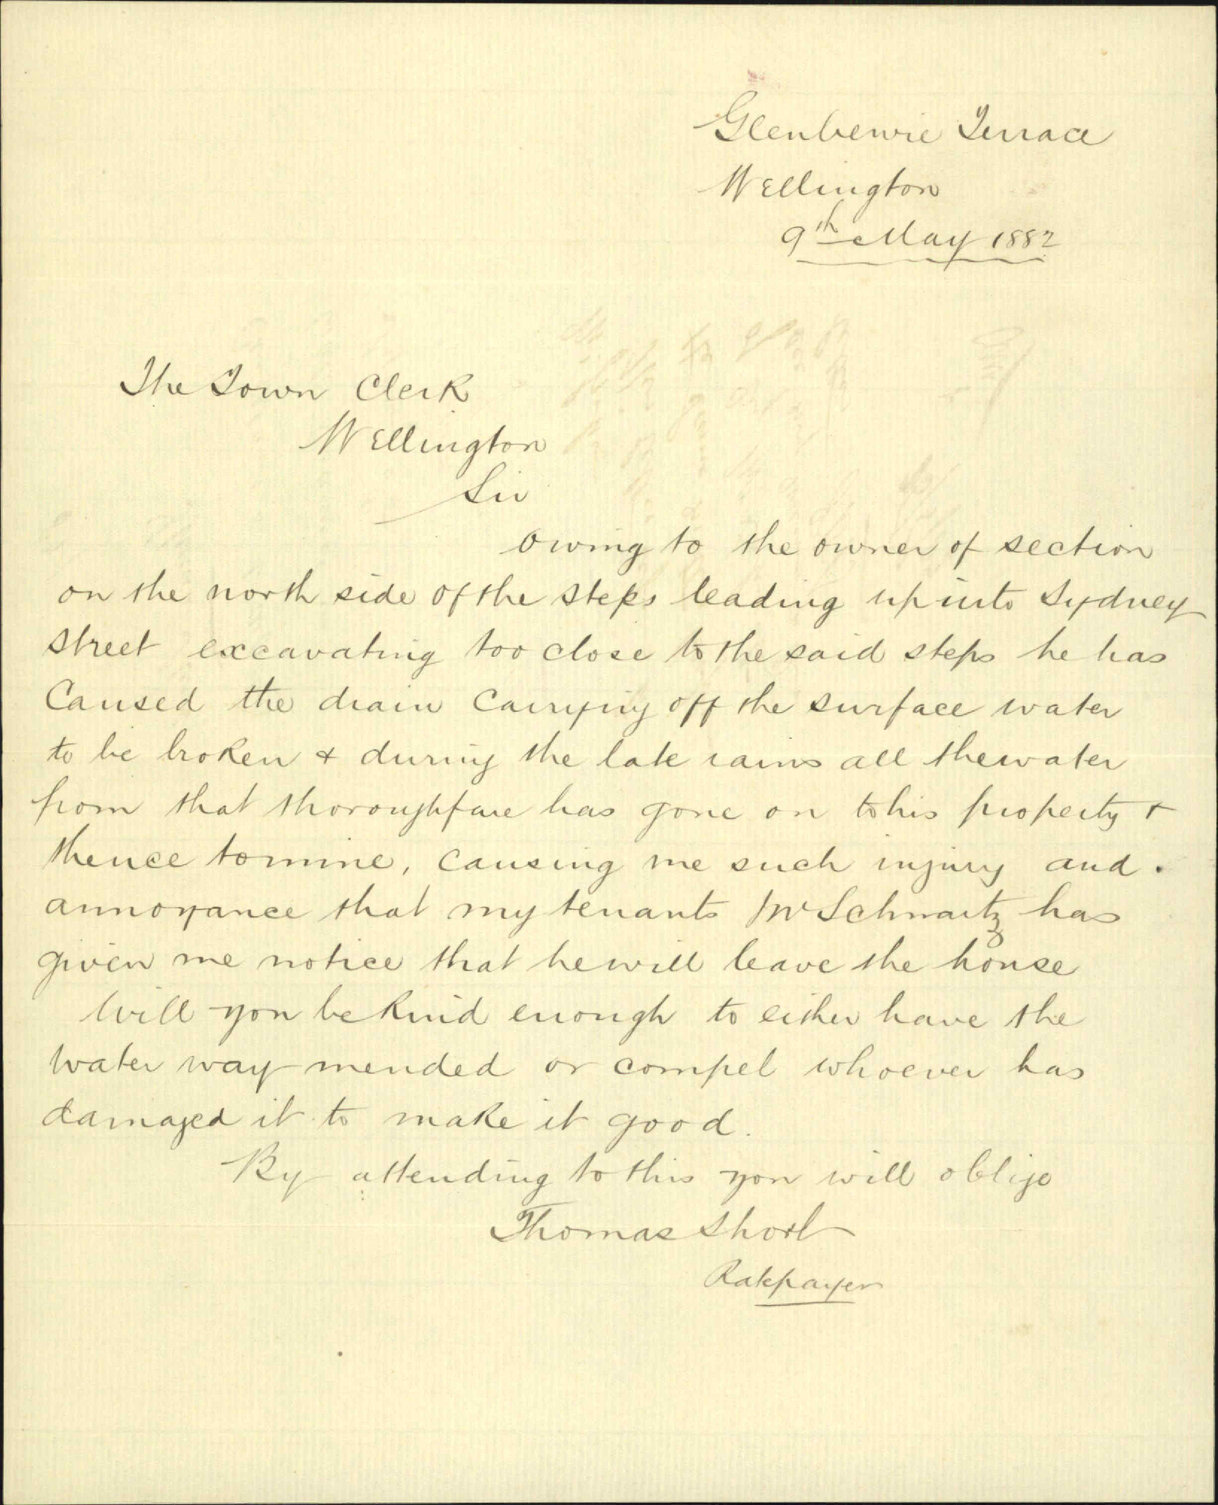 Glenbervie Terrace
Wellington
9th May 1882
The Town Clerk
Wellington
Sir
Owing to the owner of section
on the north side of the steps leading up into Sydney
Street excavating too close to the said steps he has
Caused the drain Carrying off the surface water
to be broken & during the late rains all the water
from that thoroughfare has gone on to his property &
thence to mine, causing me such injury and
annoyance that my tenants Mr Schwartz has
given me notice that he will leave the house
Will you be kind enough to either have the
water way mended or compel whoever has
damaged it to make it good.
By attending to this you will oblige
Thomas Short
Ratepayer